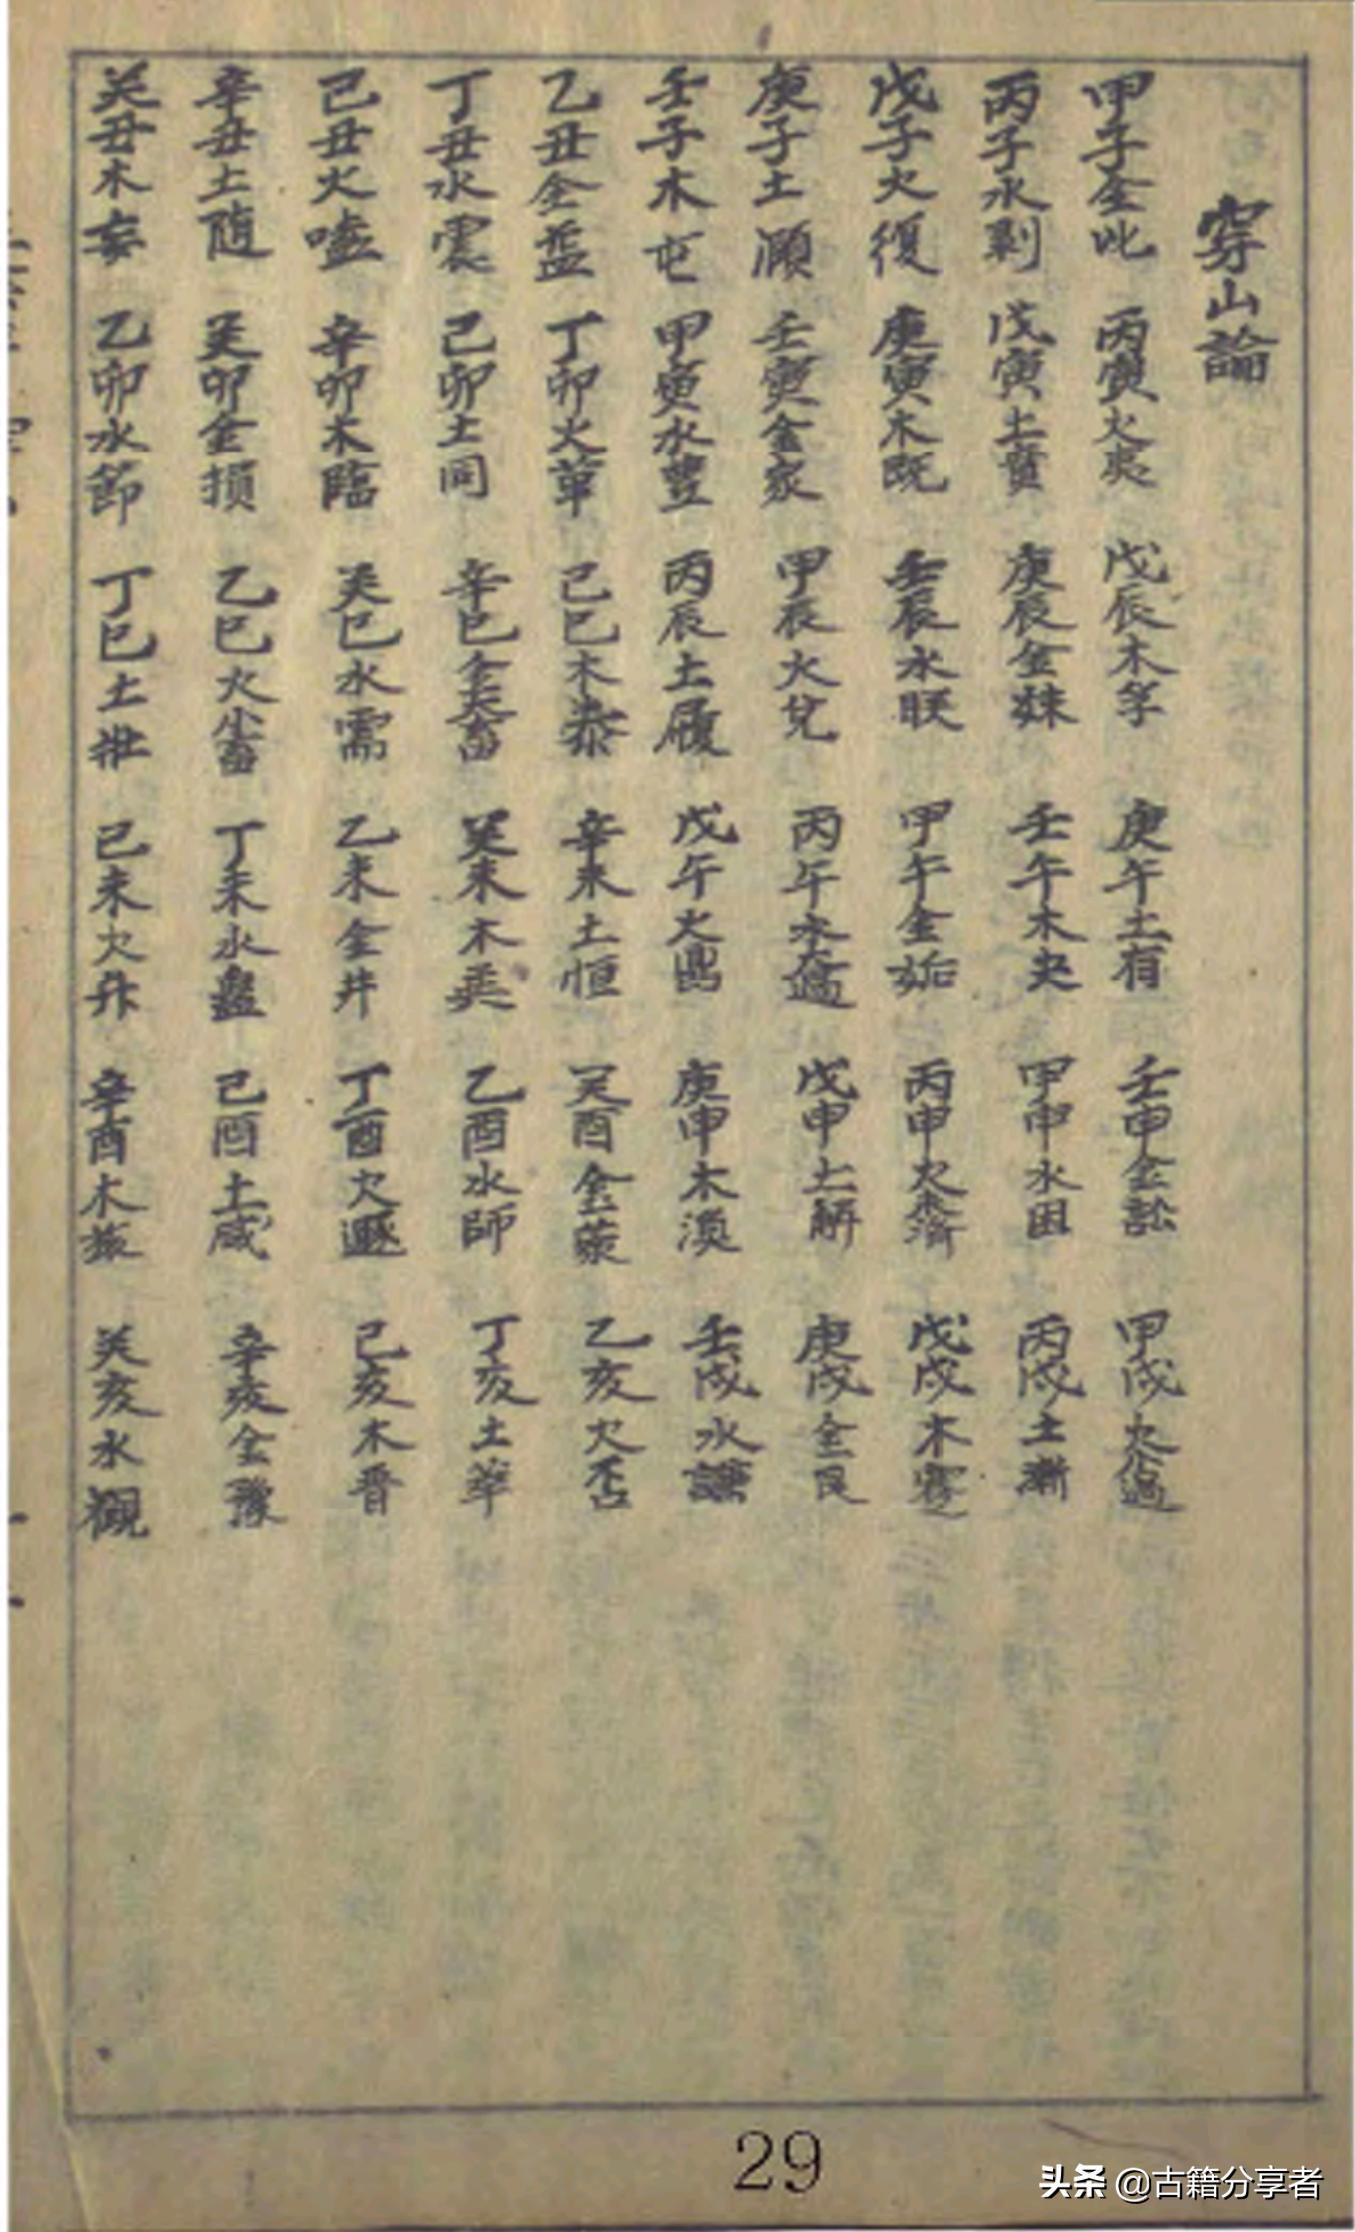 穿山論
甲子金比 丙寅火夷 戊辰木孚 庚午土有 壬申金訟 甲戌火小過
丙子水剝 戊寅土賁 庚辰金妹 壬午木夬 甲申水困 丙戌土漸
戊子火復 庚寅木既 壬辰水睽 甲午金姤 丙申火未濟 戊戌木蹇
庚子土頤 壬寅金家 甲辰火兌 丙午水大過 戊申土解 庚戌金艮
壬子木屯 甲寅水豐 丙辰土履 戊午火鼎 庚申木渙 壬戌水謙
乙丑金益 丁卯火革 己巳木泰 辛未土恒 癸酉金蒙 乙亥火否
丁丑水震 己卯土同 辛巳金大畜 癸未木巽 乙酉水師 丁亥土萃
己丑火嗑 辛卯木臨 癸巳水需 乙未金井 丁酉火遯 己亥木晋
辛丑土随 癸卯金損 乙巳火小畜 丁未水蠱 己酉土咸 辛亥金豫
癸丑木妄 乙卯水節 丁巳土壮 己未火升 辛酉木旅 癸亥水観
29
头条 @古籍分享者